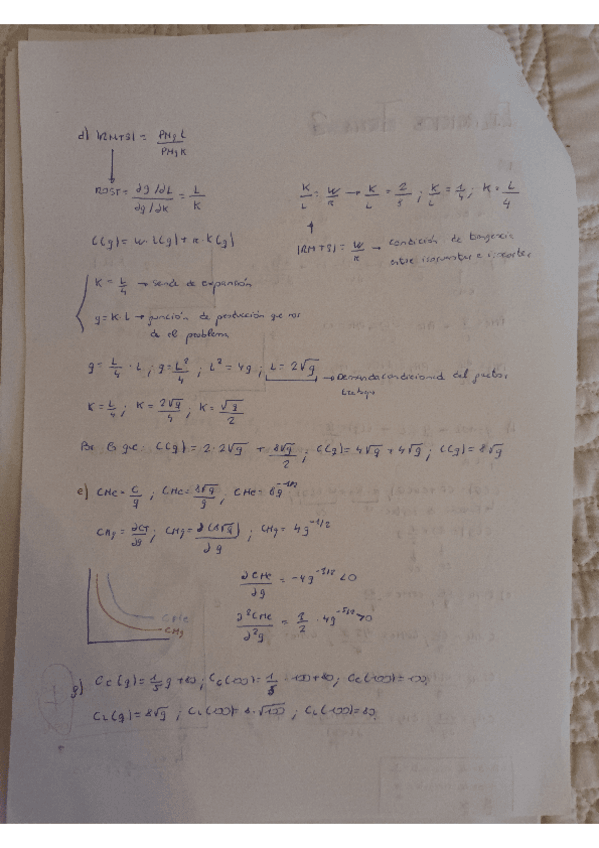 d) |RMTS| = PMg L / PMg K
RMST = ∂g/∂L / ∂g/∂K = L/K
K/L = W/r → K/L = 2/8 ; K/L = 1/4 ; K = L/4
C(g) = w·L(g) + r·K(g)
|RMTS| = W/r → condición de tangencia
entre isocuantas e isocostes
K = L/4 → senda de expansión
g = K·L → función de producción que nos
da el problema
g = L/4 · L ; g = L²/4 ; L² = 4g ; L = 2√g → Demanda condicionada del factor
trabajo
K = L/4 ; K = 2√g/4 ; K = √g/2
C(g) = 2·2√g + 8√g/2 ; C(g) = 4√g + 4√g ; C(g) = 8√g
e) CMe = C/g ; CMe = 8√g/g ; CMe = 8g^-1/2
CMg = ∂CT/∂g ; CMg = ∂(8√g)/∂g ; CMg = 4g^-1/2
∂CMe/∂g = -4g^-3/2 < 0
∂²CMe/∂²g = 3/2 · 4g^-5/2 > 0
CMe
CMg
g)
CL(g) = 8√g ; CL(100) = 8·√100 ; CL(100) = 80